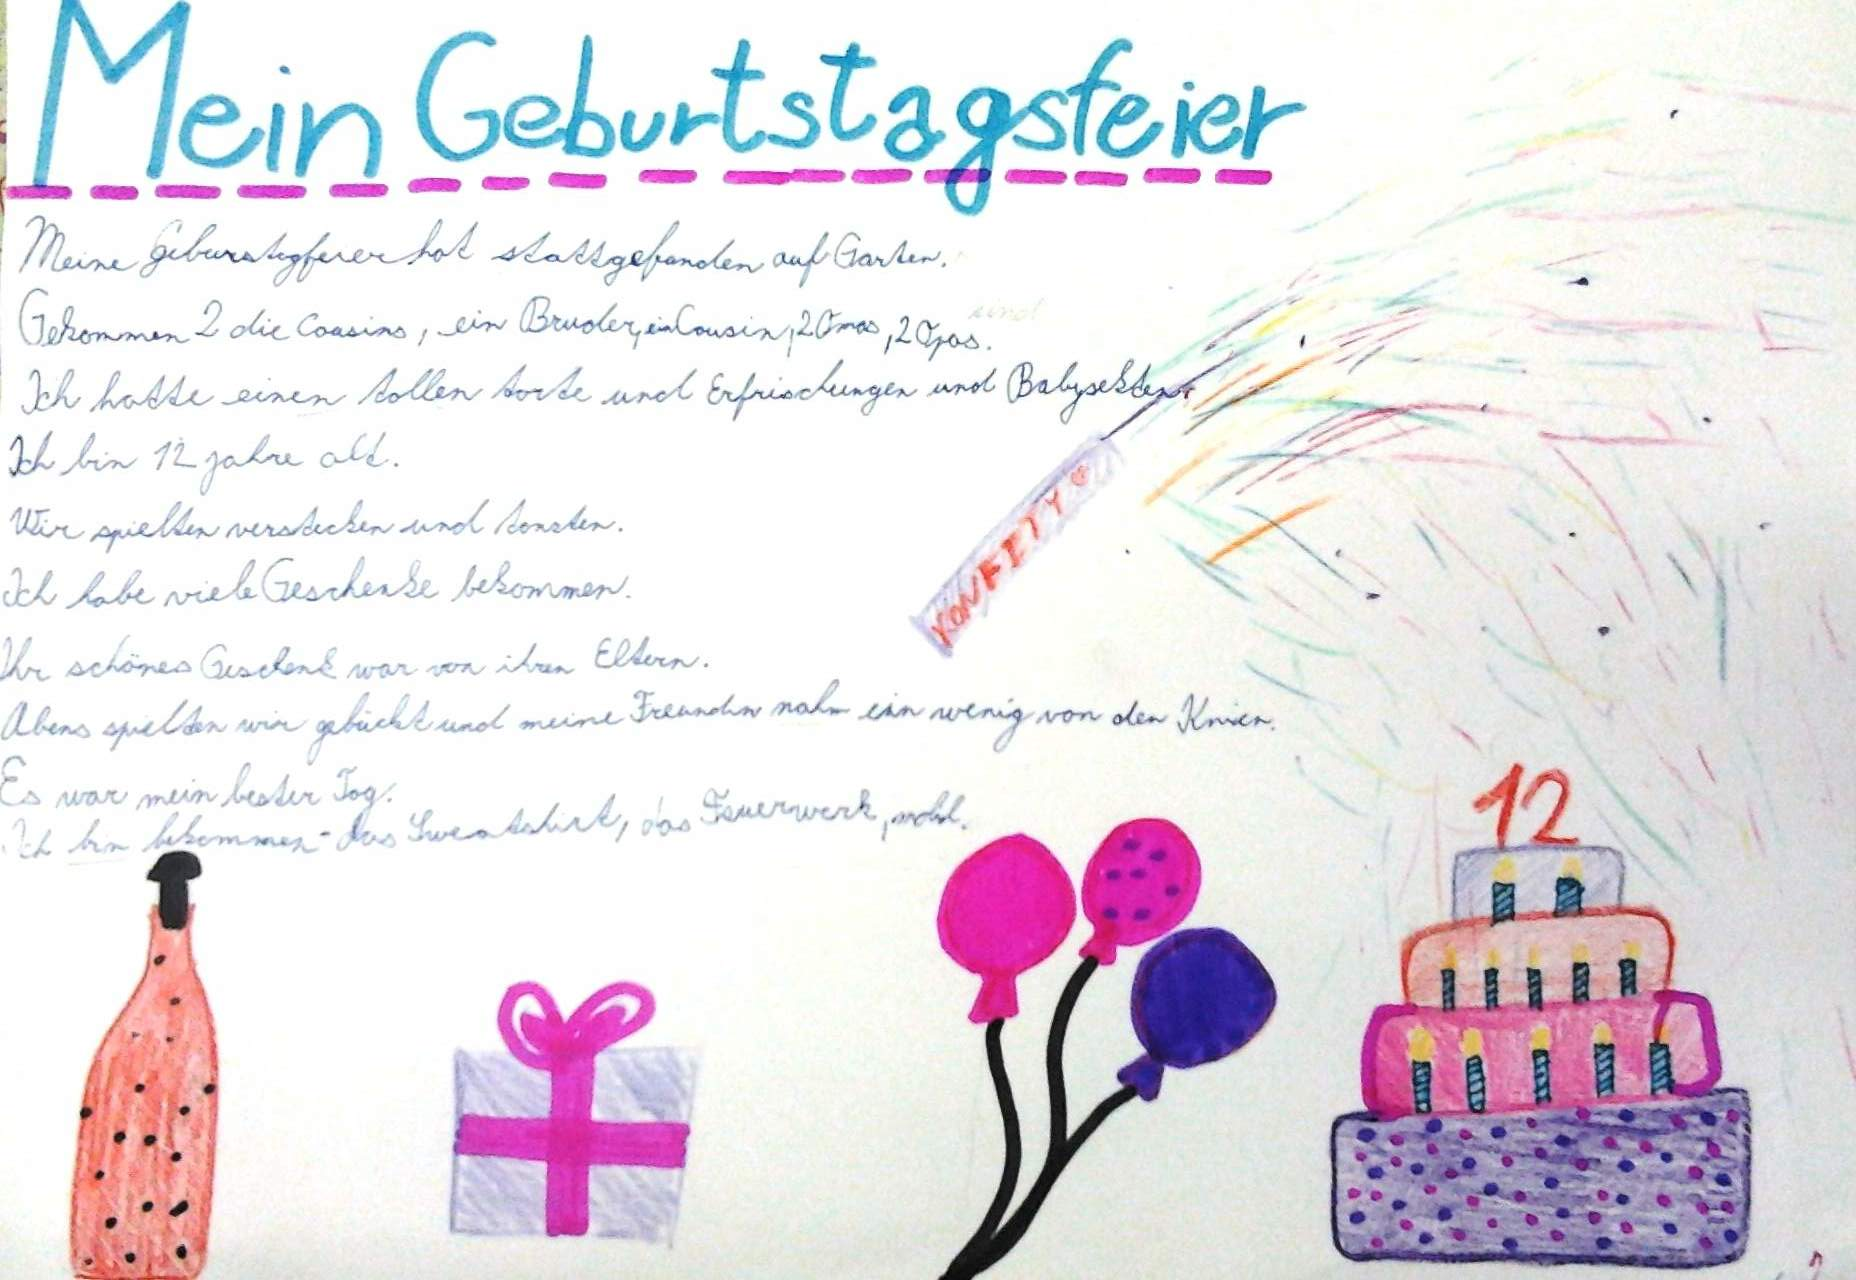 Mein Geburtstagsfeier
Meine Geburstagfeier hat stattgefunden auf Garten.
sind
Gekommen 2 die Cousins, ein Bruder, ein Cousin, 2 Omas, 2 Opas.
Ich hatte einen tollen torte und Erfrischungen und Babysekten.
Ich bin 12 jahre alt.
Wir spielten verstecken und tansten.
Ich habe viele Geschenke bekommen.
Ihr schönes Geschenk war von ihren Eltern.
Abens spielten wir gebückt und meine Freundin nahm ein wenig von den Knien.
Es war mein bester Tag.
Ich bin bekommen - das Sweatshirt, das Feuerwerk,
KONFETTY
12